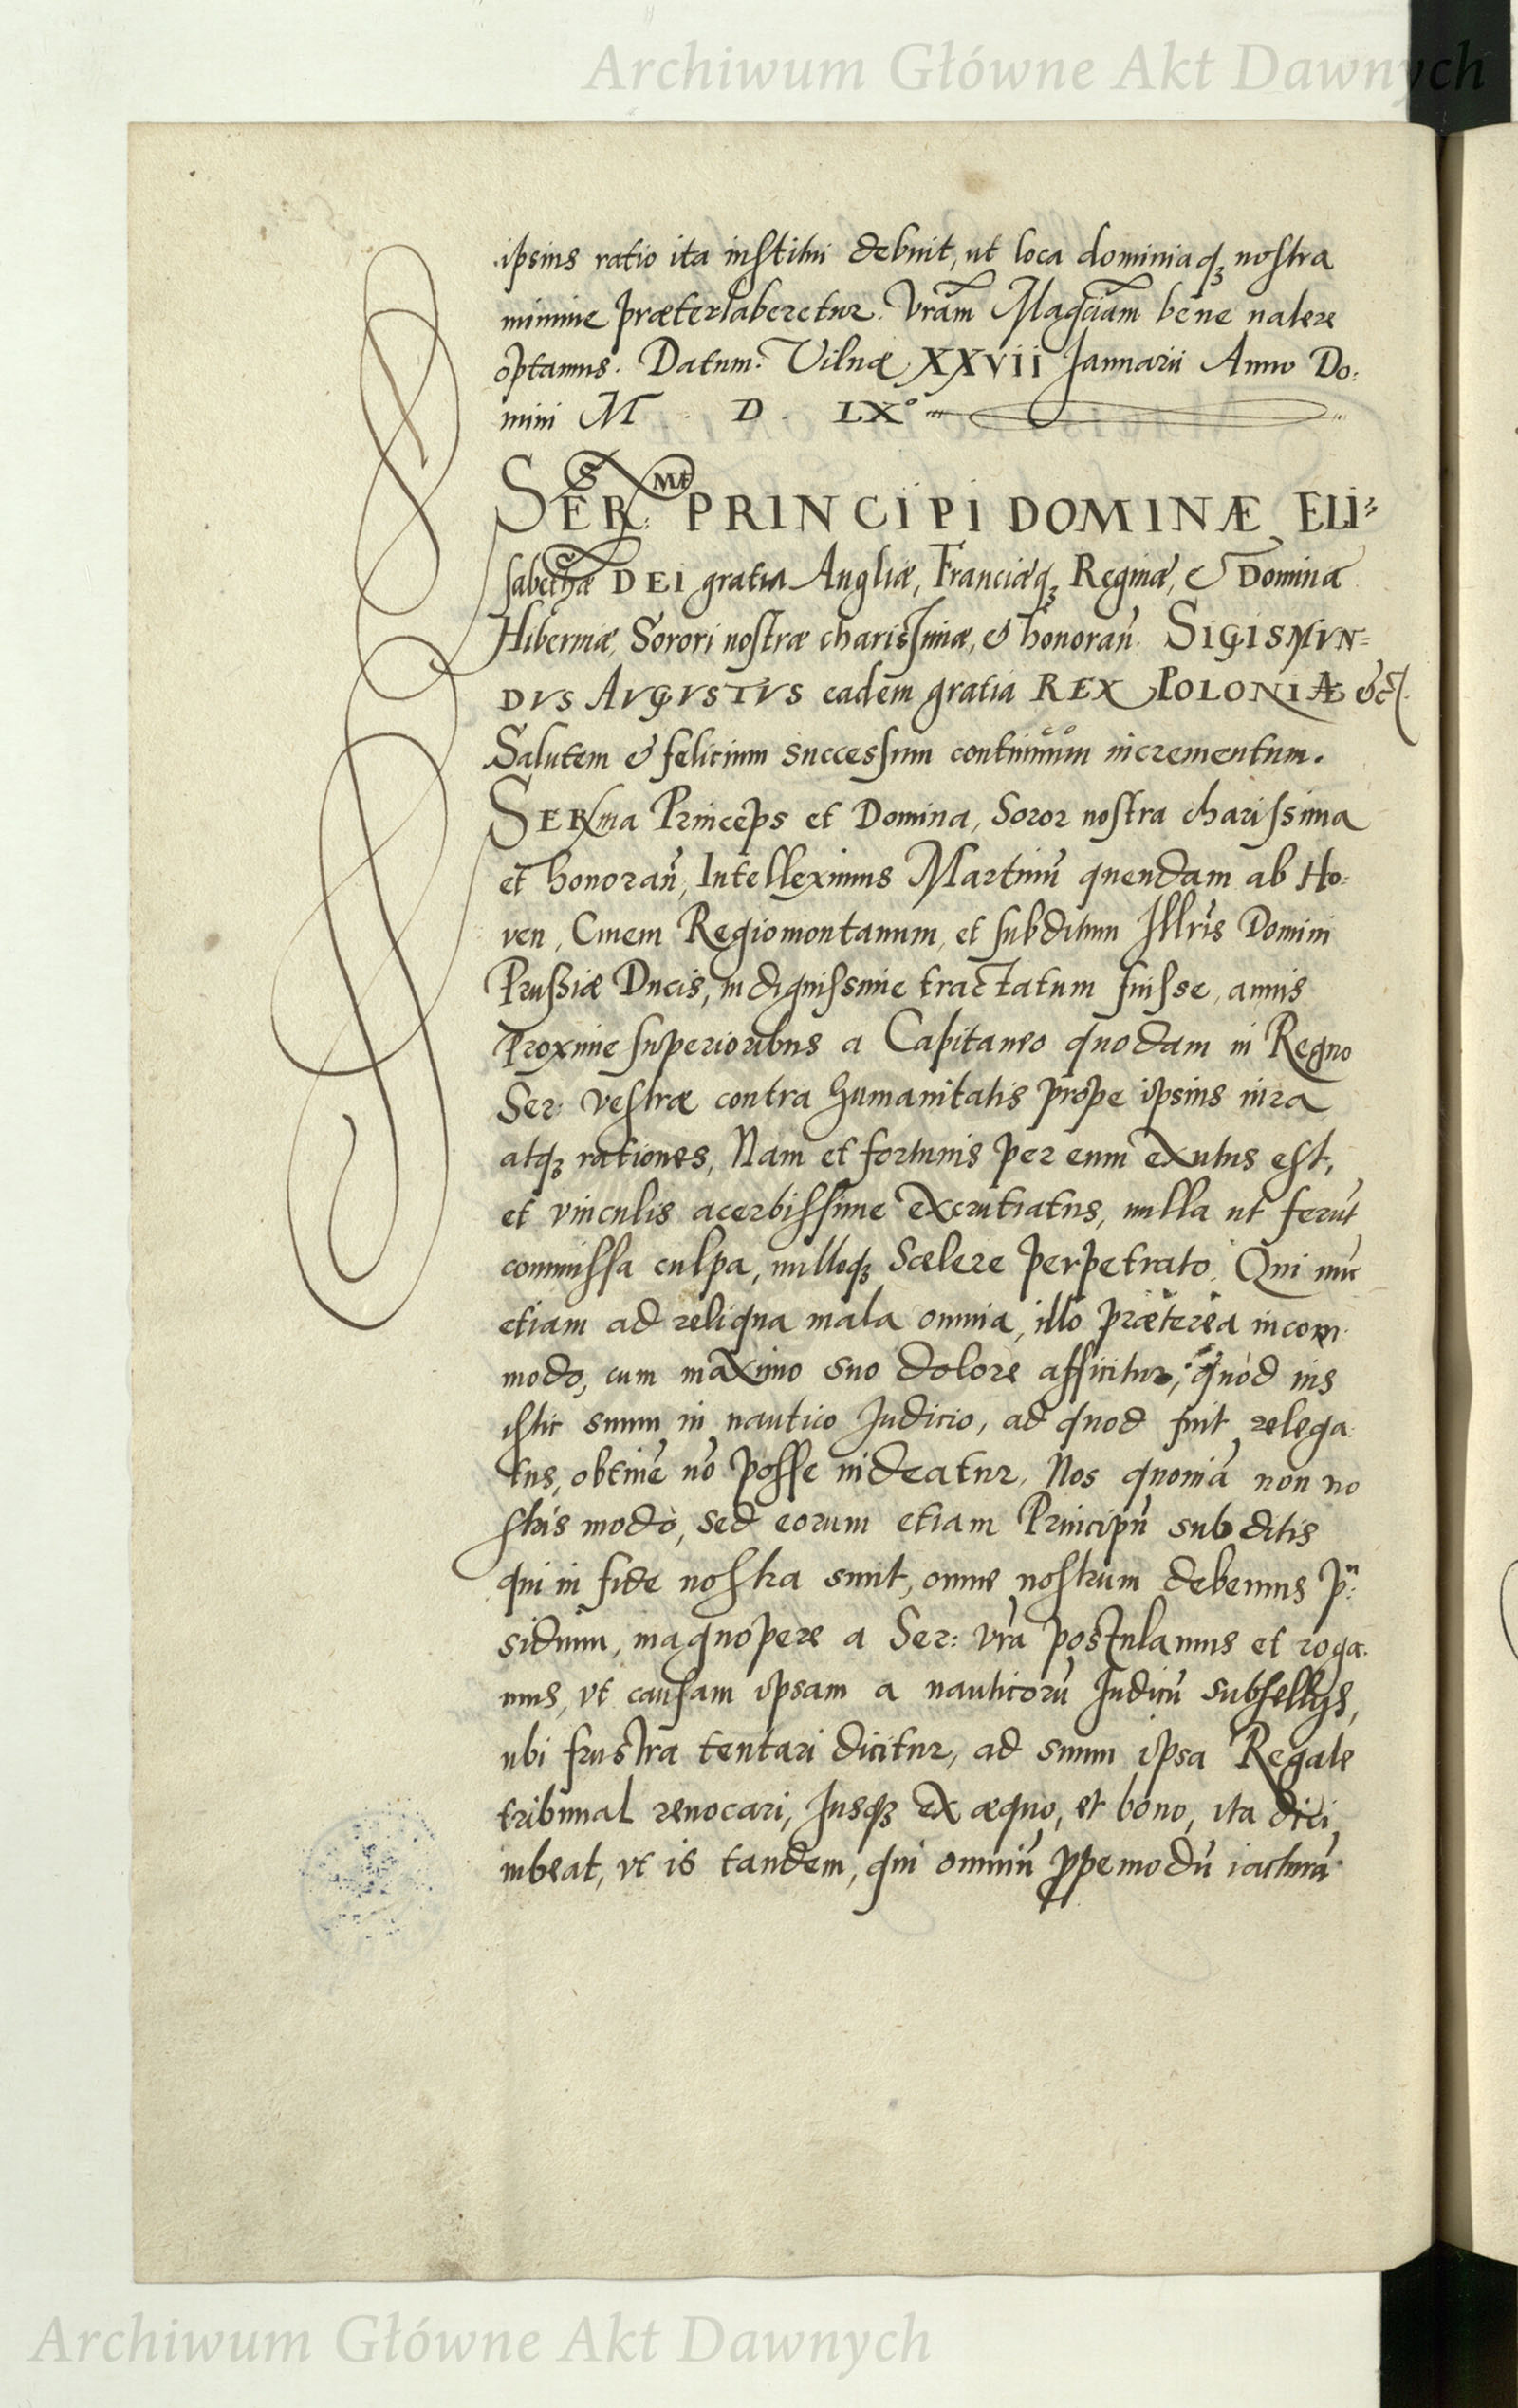 Archiwum Główne Akt Dawnych
ipsius ratio ita institui debuit, ut loca dominiaq; nostra
minime præterlaberetur. Vram̃ Magciam̃ bene ualere
optamus. Datum: Vilnæ XXVII Januarii Anno Do:
mini M D LX°
SER:MÆ PRINCIPI DOMINÆ ELI=
sabethæ DEI gratia Angliæ, Franciæq; Reginæ, & Dominæ
Hiberniæ, Sorori nostræ charissimæ, & honoran̄. SIGISMVN=
DVS AVGVSTVS eadem gratia REX POLONIÆ &c.
Salutem & felicium successum continuum incrementum.
SERma Princeps et Domina, Soror nostra charissima
et honoran̄, Intelleximus Martinū quendam ab Ho:
ven, Ciuem Regiomontanum, et subditum Illris Domini
Prussiæ Ducis, indignissime tractatum fuisse, annis
Proxime superioribus a Capitaneo quodam in Regno
Ser: vestræ contra humanitatis prope ipsius iura
atq; rationes, Nam et fortunis per eum exutus est,
et vinculis acerbissime excrutiatus, nulla ut ferūt
commissa culpa, nulloq; scelere perpetrato. Qui nūc
etiam ad reliqua mala omnia, illo præterea incom
modo, cum maximo suo dolore afficitur, quòd ius
istic suum in nautico Judicio, ad quod fuit relega:
tus, obtinē nō posse uideatur, Nos quoniā non no
stris modò, sed eorum etiam Principū subditis
qui in fide nostra sunt, omne nostrum debemus p̈:
sidium, magnopere a Ser: vrã postulamus et roga:
mus, vt causam ipsam a nauticorū Judicū subsellijs,
ubi frustra tentari dicitur, ad suum ipsa Regale
tribunal reuocari, Jusq; ex æquo, et bono, ita dici
iubeat, vt is tandem, qui omniū ꝓpemodū iacturā
Archiwum Główne Akt Dawnych